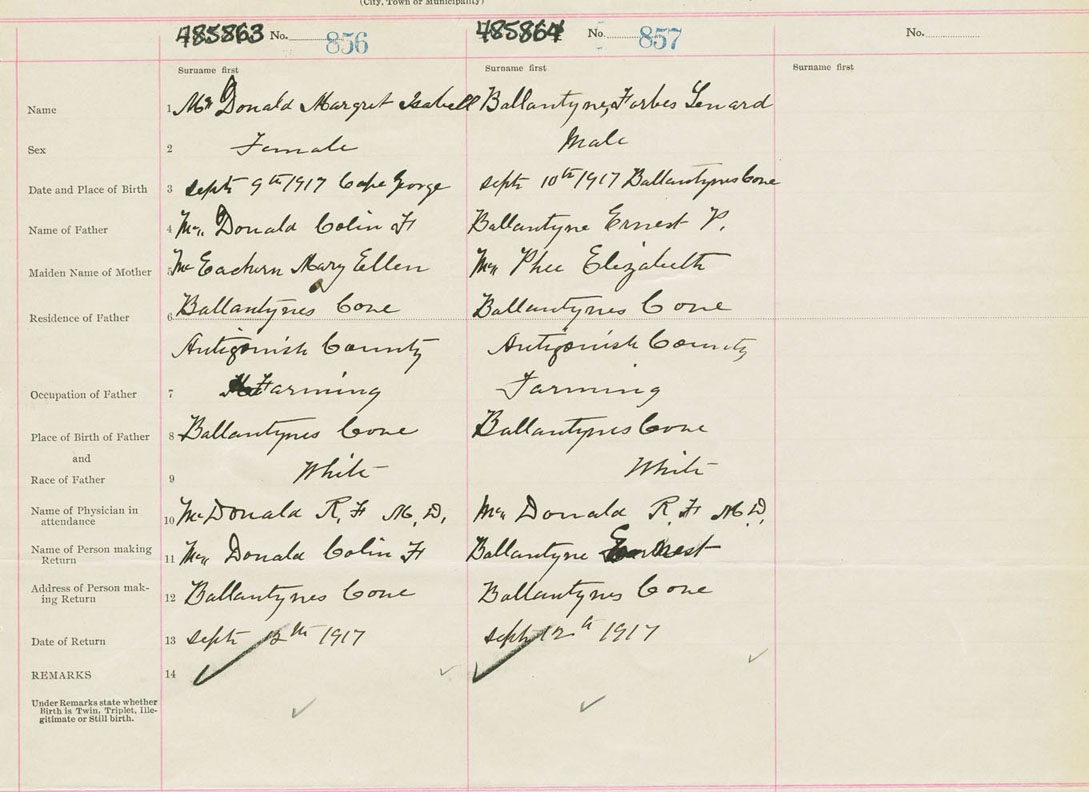 (City, Town or Municipality)
485863 No. 856 485864 No. 857 No.
Surname first Surname first Surname first
Name 1 Mc Donald Margret Isabell Ballantyne, Forbes Lenard
Sex 2 Female Male
Date and Place of Birth 3 Sept 9th 1917 Cape George Sept 10th 1917 Ballantynes Cove
Name of Father 4 Mc Donald Colin F Ballantyne Ernest P.
Maiden Name of Mother 5 Mc Eachern Mary Ellen Mc Phee Elizabeth
Residence of Father 6 Ballantynes Cove Ballantynes Cove
Antigonish County Antigonish County
Occupation of Father 7 Farming Farming
Place of Birth of Father 8 Ballantynes Cove Ballantynes Cove
and
Race of Father 9 White White
Name of Physician in
attendance 10 Mc Donald R. F M.D. Mc Donald R. F M.D.
Name of Person making
Return 11 Mc Donald Colin F Ballantyne Ernest
Address of Person mak-
ing Return 12 Ballantynes Cove Ballantynes Cove
Date of Return 13 Sept 12th 1917 Sept 12th 1917
REMARKS 14
Under Remarks state whether
Birth is Twin, Triplet, Ille-
gitimate or Still birth.